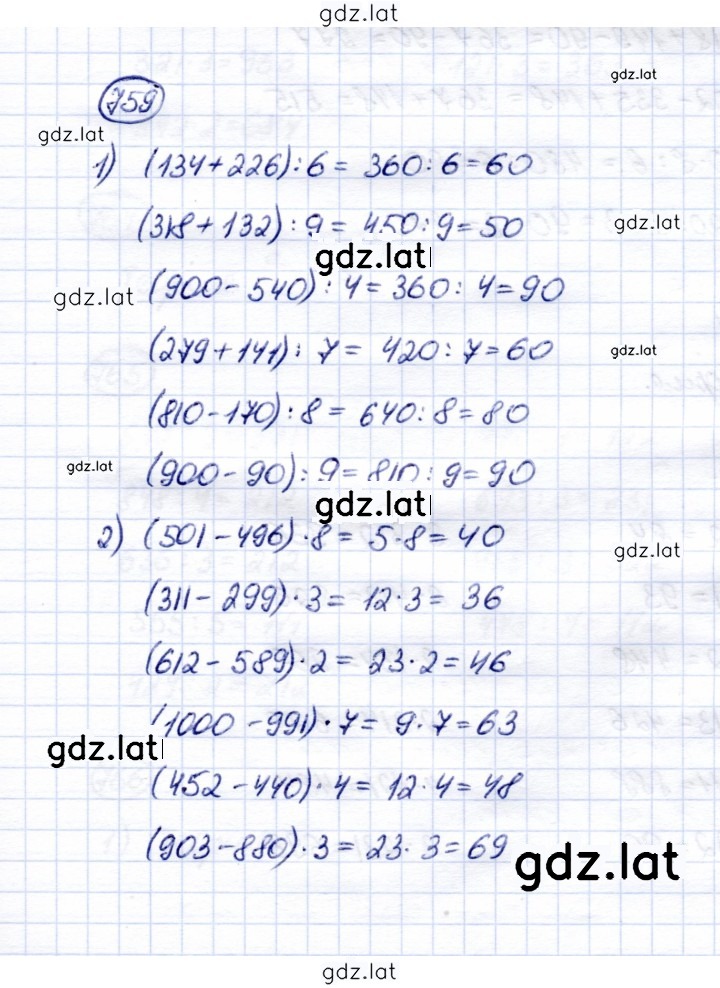 gdz.lat
gdz.lat
759
gdz.lat
1) (134+226):6= 360:6=60
(318+132):9= 450:9=50
gdz.lat
gdz.lat
gdz.lat
(900-540):4=360:4=90
(279+141):7= 420:7=60
gdz.lat
(810-170):8= 640:8=80
gdz.lat
(900-90):9=810:9=90
gdz.lat
2) (501-496)·8= 5·8=40
gdz.lat
(311-299)·3= 12·3= 36
(612-589)·2= 23·2=46
(1000-991)·7= 9·7=63
gdz.lat
(452-440)·4= 12·4=48
(903-880)·3=23·3=69
gdz.lat
gdz.lat